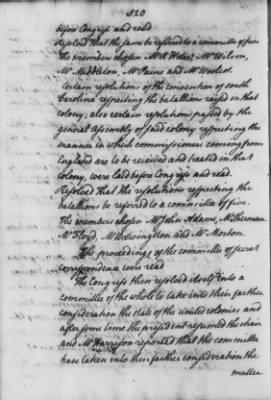 520
before Congress and read
Resolved That the same be referred to a committee of five
The members chosen Mr Wilson,
Mr Middleton, Mr Paine and Mr Wisner.
Certain resolutions of the convention of south
Carolina respecting the battalions raised in that
colony, also certain resolutions passed by the
general Assembly of said colony respecting the
manner in which commissioners coming from
England are to be received and treated in that
colony, were laid before Congress and read.
Resolved That the resolutions respecting the
battalions be referred to a committee of five.
The members chosen Mr John Adams, Mr Sherman
Mr Floyd, Mr W Livingston and Mr Morton.
The proceedings of the committee of secret
correspondence were read
The Congress then resolved itself into a
committee of the whole to take into their farther
consideration the state of the united colonies and
after some time the president resumed the chair
and Mr Harrison reported that the committee
have taken into their farther consideration the
matter